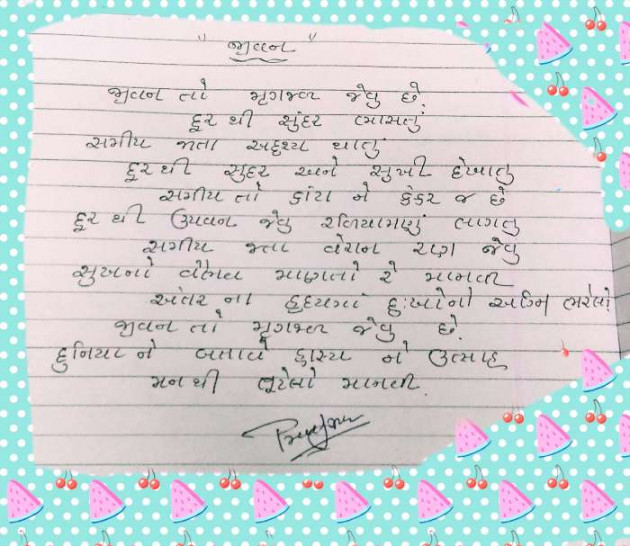 "જીવન"
જીવન તો મૃગજળ જેવું છે.
દૂર થી સુંદર ભાસતું
સમીપ જાતા અદ્દશ્ય થાતું
દૂર થી સુંદર અને સુખી દેખાતુ
સમીપ તો કાંટા ને કંકર જ છે
દૂર થી ઉપવન જેવુ રળિયામણું લાગતુ
સમીપ જતા વેરાન રણ જેવુ
સુખનો વૈભવ માણતો રે માનવી
અંતર ના હૃદયમાં દુઃખોનો અગ્નિ ભરેલો
જીવન તો મૃગજળ જેવુ છે.
દુનિયા ને બતાવે હાસ્ય ને ઉત્સાહ
મનથી તૂટેલો માનવી.